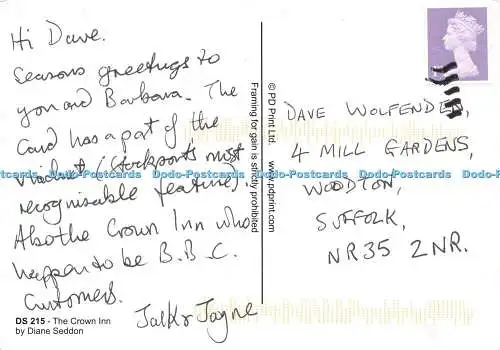 Hi Dave.
Seasons greetings to
you and Barbara. The
Card has a part of the
viaduct (Stockports most
recognisable feature).
Also the Crown Inn who
happen to be B.B.C.
Customers.
Jayne
DS 215 - The Crown Inn
by Diane Seddon
© PD Print Ltd. www.pdprint.com
Framing for gain is strictly prohibited
DAVE WOLFENDEN,
4 MILL GARDENS,
WOODTON,
SUFFOLK,
NR35 2NR.
Dodo-Postcards Dodo-Postcards Dodo-Postcards Dodo-Postcards Dodo-Postcards